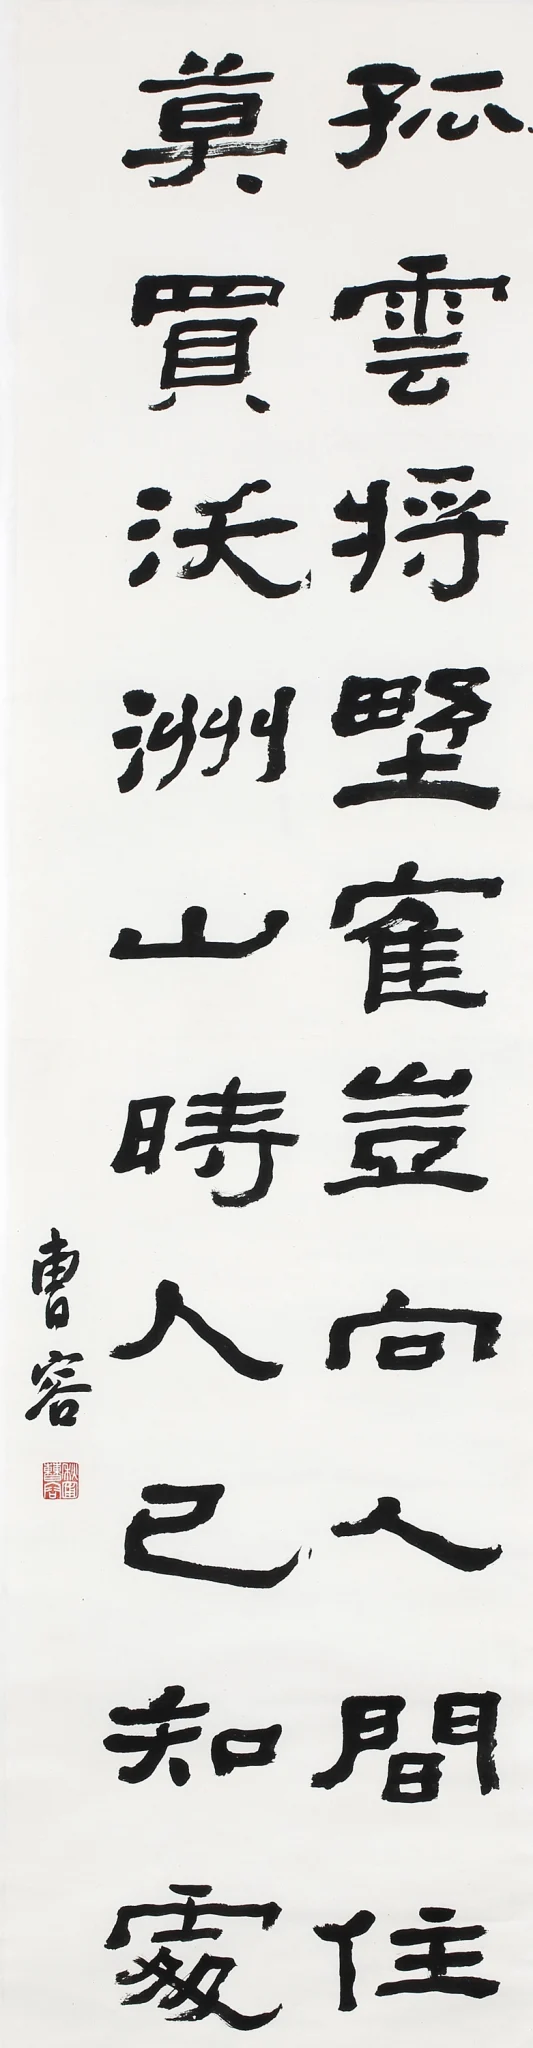 孤雲将野寉豈向人間住
莫買沃洲山時人已知處
曹容